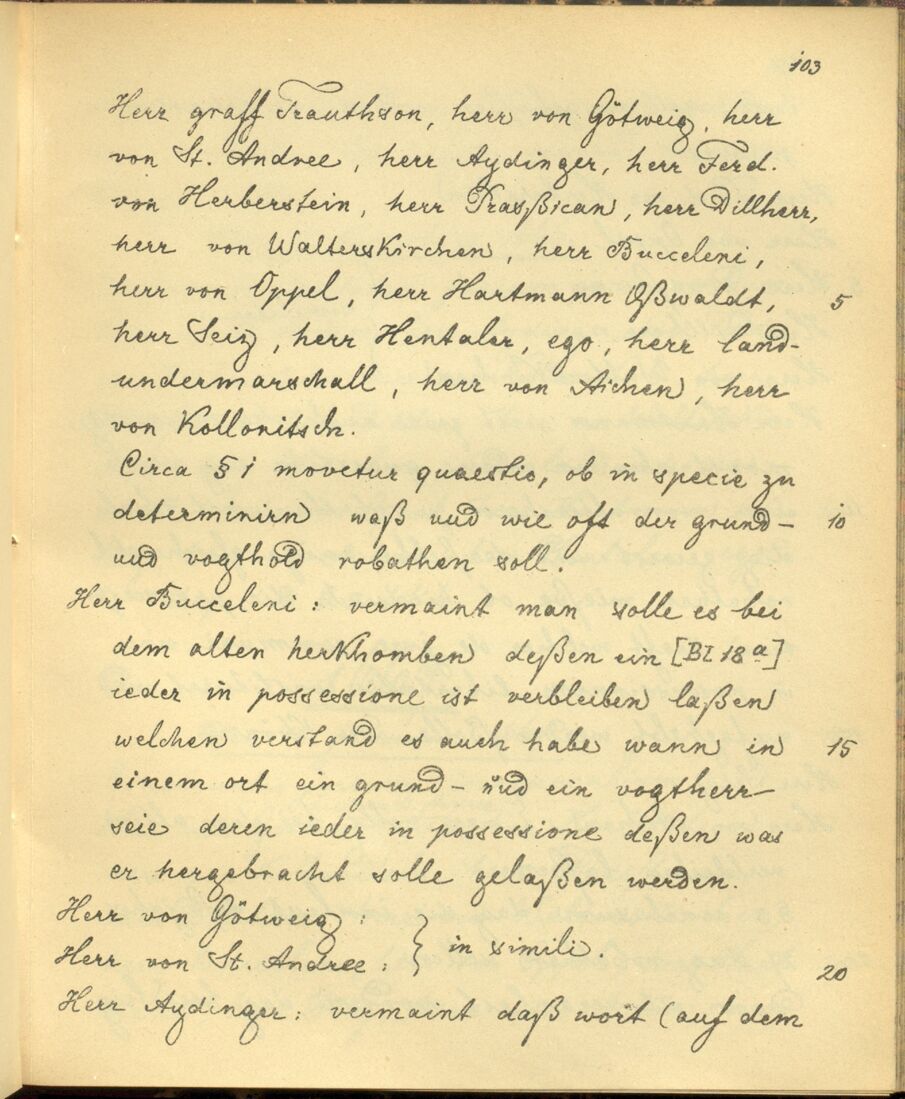 103
Herr graff Trauthson, herr von Götweig, herr
von St. Andree, herr Aydinger, herr Ferd.
von Herberstein, herr Prasßican, herr Dillherr,
herr von Walterskirchen, herr Bucceleni,
herr von Oppel, herr Hartmann Oßwaldt, 5
herr Seiz, herr Hentaler, ego, herr land-
undermarschall, herr von Aichen, herr
von Kollonitsch.
Circa § 1 movetur quaestio, ob in specie zu
determinirn waß und wie oft der grund- 10
und vogthold robathen soll.
Herr Bucceleni: vermaint man solle es bei
dem alten herkhomben deßen ein [Bl 18a]
ieder in possessione ist verbleiben laßen
welchen verstand es auch habe wann in 15
einem ort ein grund- und ein vogtherr
seie deren ieder in possessione deßen was
er hergebracht solle gelaßen werden.
Herr von Götweig: } in simili.
Herr von St. Andree:
20
Herr Aydinger: vermaint daß wort (auf dem